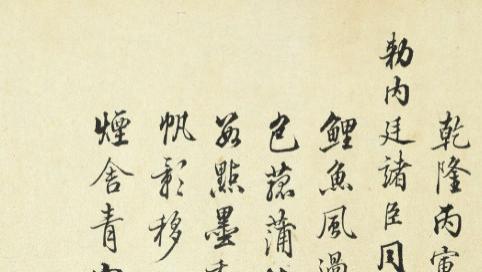 乾隆丙寅
勅内廷諸臣同
鯉魚風過
包蒞蒲
數點墨
帆影移
煙舍青